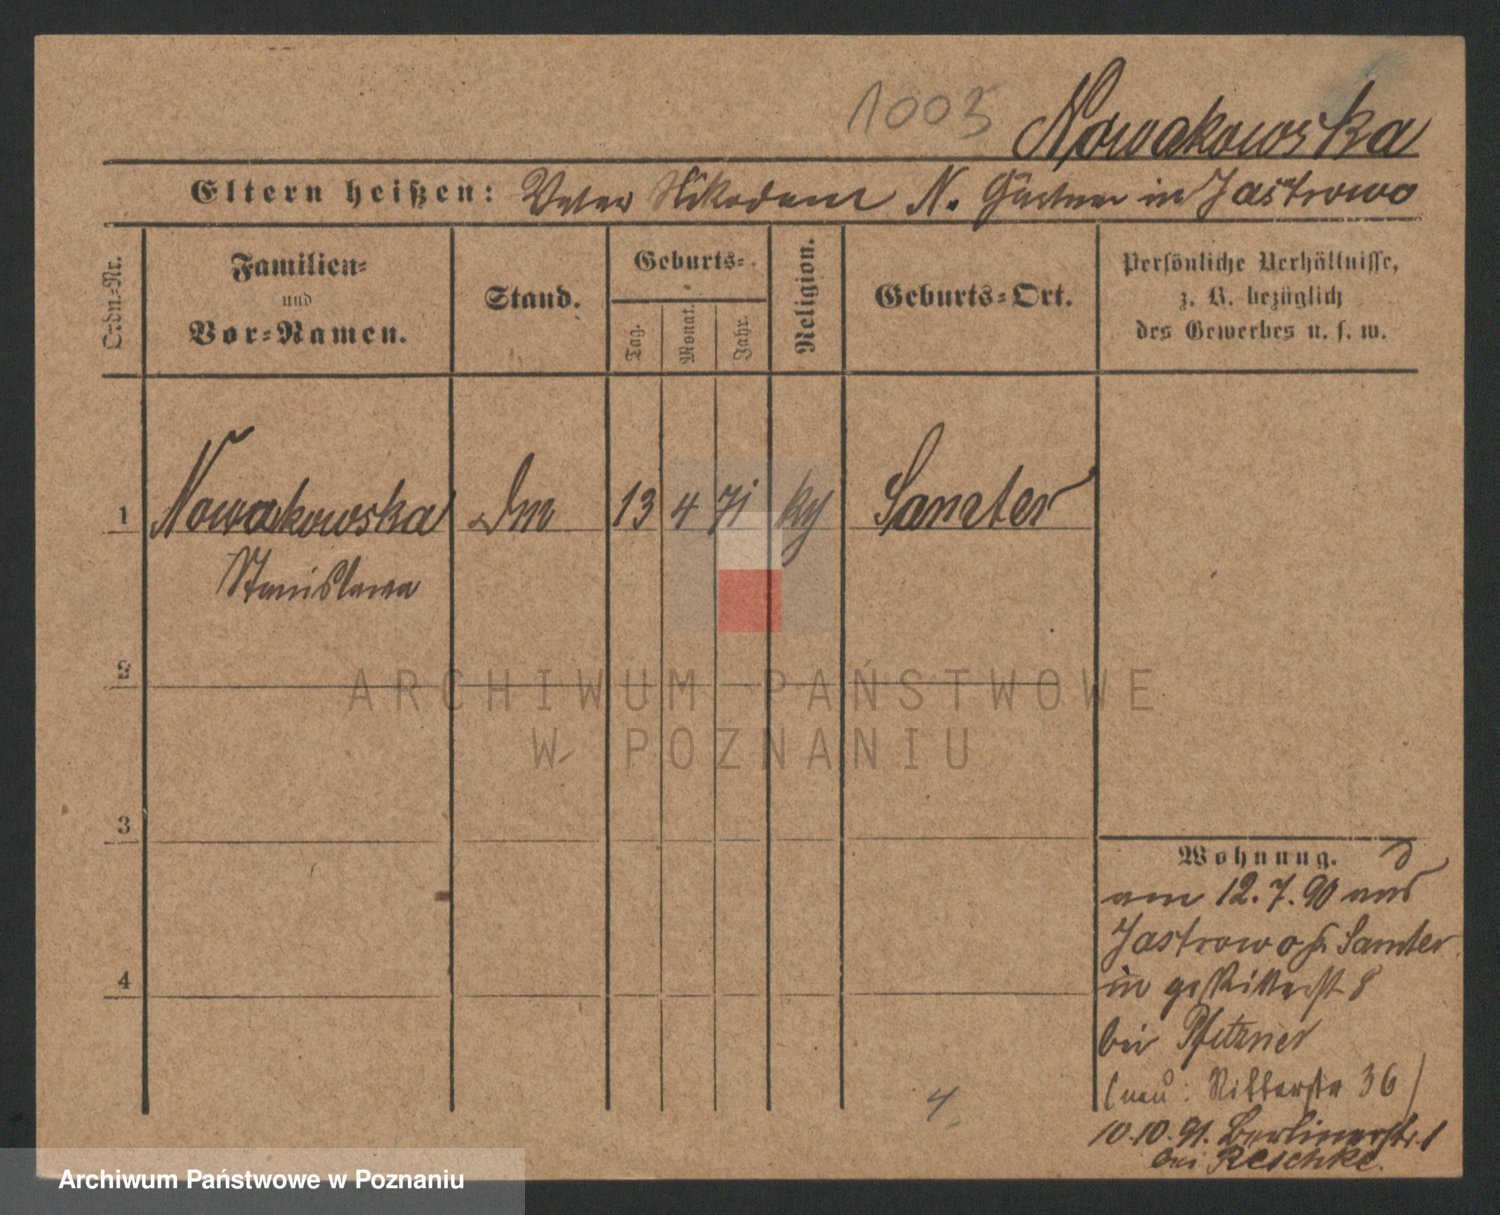 1003 Nowakowska
Eltern heißen: Vater Nikodem N. Gärtner in Jastrowo
Ordn.-Nr.
Familien-
und
Vor-Namen.
Stand.
Geburts-
Tag.
Monat.
Jahr.
Religion.
Geburts-Ort.
Persönliche Verhältnisse,
z. B. bezüglich
des Gewerbes u. s. w.
1 Nowakowska 13 4 71 Samter
Stanislawa
2
3
4
Wohnung.
am 12.7.90 aus
Jastrowo Samter
in 8
bei Pfitzner
(neu: Ritterstr 36)
10.10.91. Berlinerstr. 1
bei Reschke.
4
ARCHIWUM PAŃSTWOWE
W POZNANIU
Archiwum Państwowe w Poznaniu